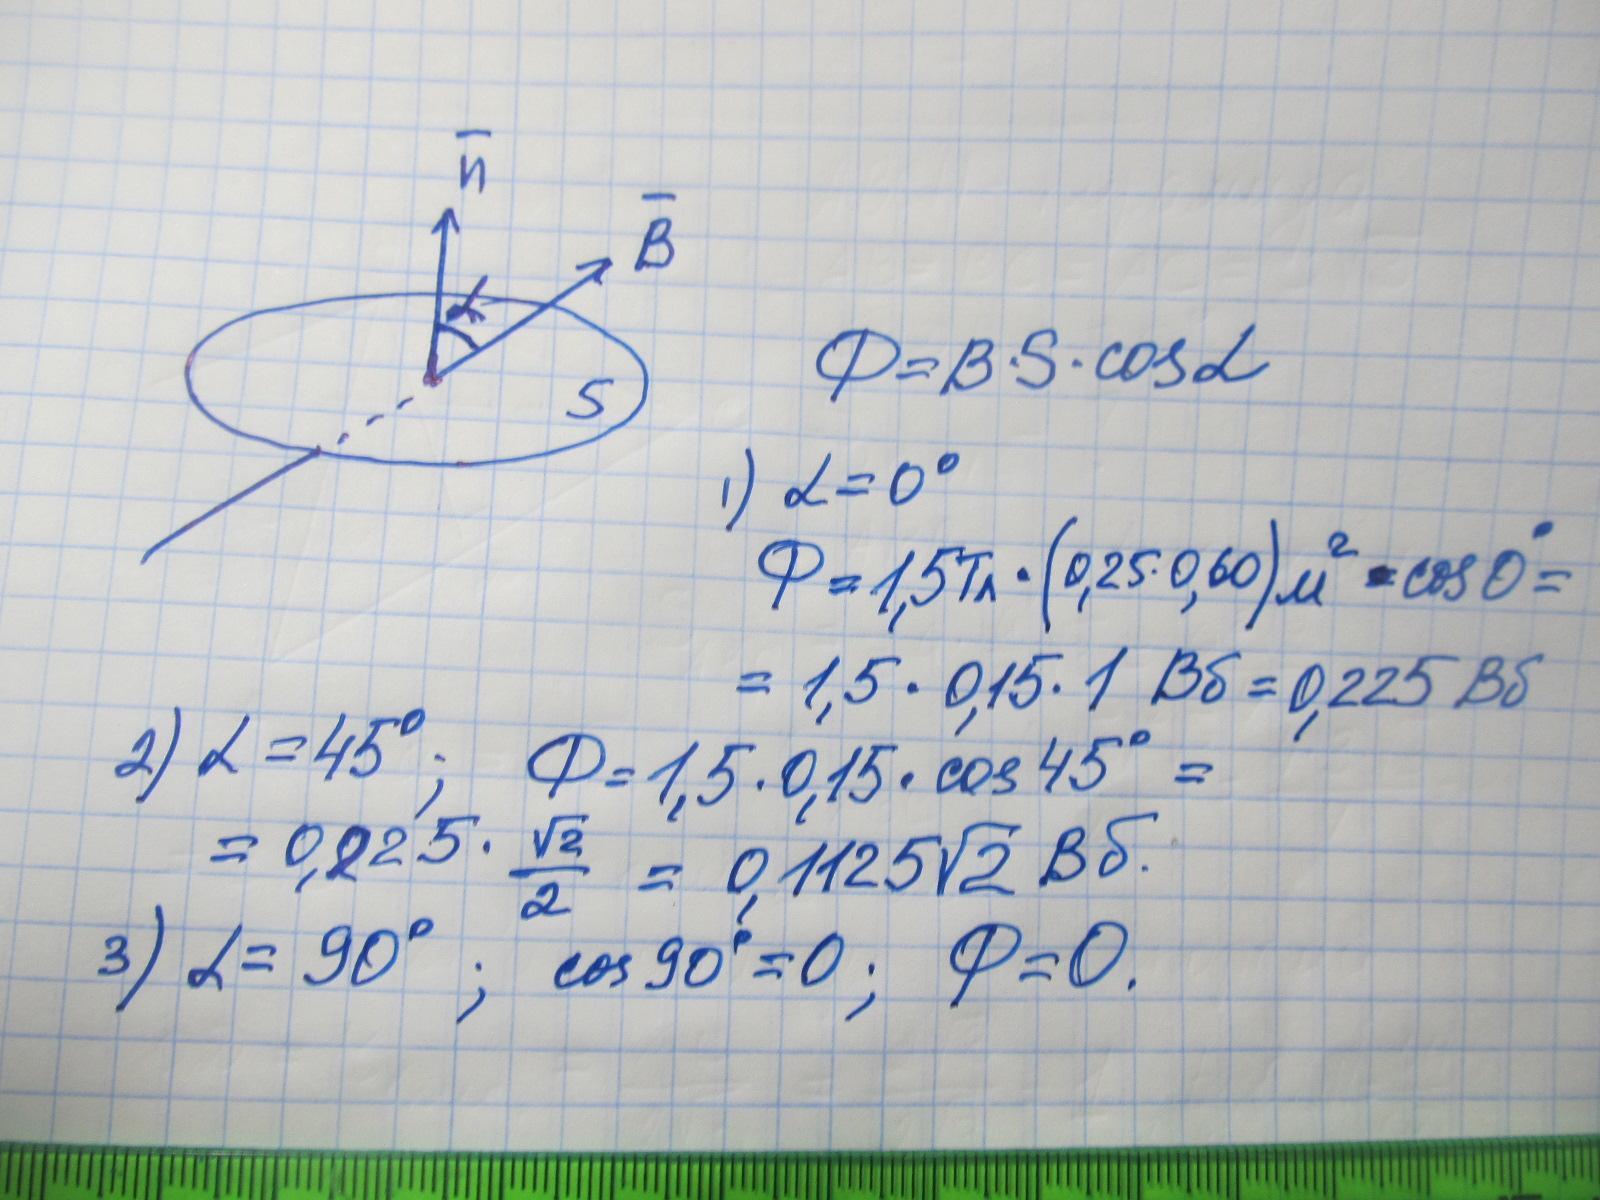 n̅
B̅
α
S
Ф=B·S·cosα
1) α=0°
Ф=1,5Тл·(0,25·0,60)м²·cos0°=
= 1,5·0,15·1 Вб=0,225 Вб
2) α=45°; Ф=1,5·0,15·cos45°=
= 0,225·√2/2 = 0,1125√2 Вб.
3) α=90°; cos90°=0; Ф=0.